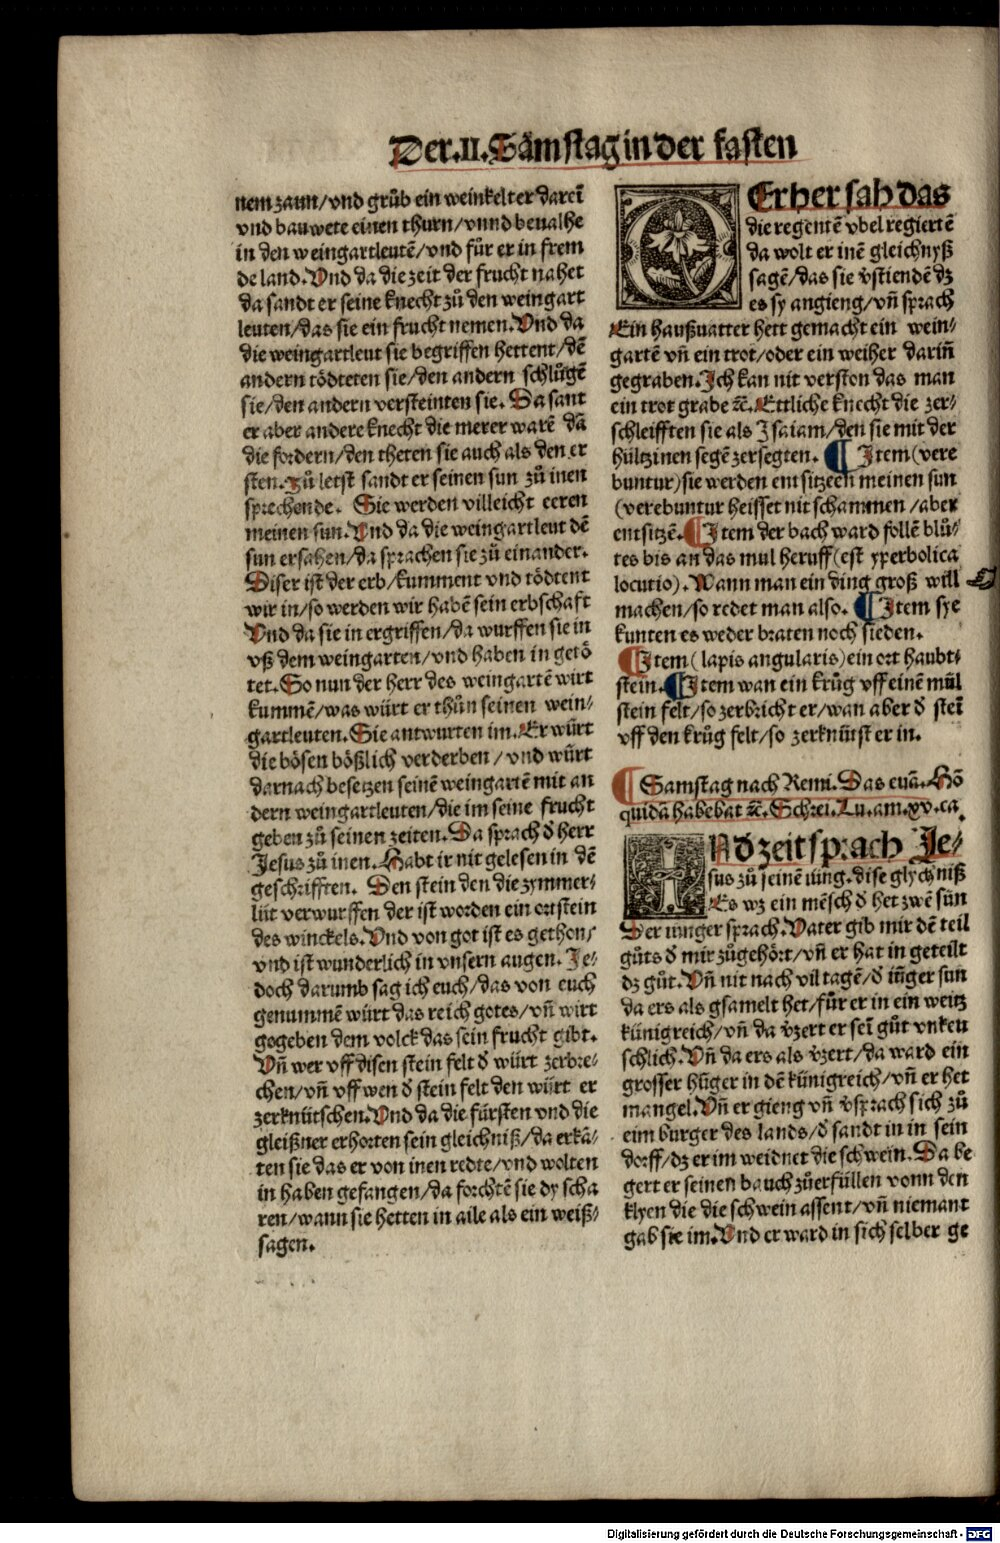 Der.II.Sāmstag in der fasten
nem zaun/vnd grůb ein weinkelter darcī
vnd bauwete einen thurn/vnnd beualhe
in den weingartleutē/vnd für er in frem
de land.Vnd da die zeit der frucht nahet
da sandt er seine knecht zů den weingart
leuten/das sie ein frucht nemen.Vnd da
die weingartleut sie begriffen hettent/dē
andern tödteten sie/den andern schlůgē
sie/den andern versteinten sie.Da sant
er aber andere knecht die merer warē dā
die fordern/den theten sie auch als den er
sten.zů letst sandt er seinen sun zů inen
sprechende. Sie werden villeicht eeren
meinen sun.Vnd da die weingartleut dē
sun ersahen/da sprachen sie zů einander.
Diser ist der erb/kumment vnd tödtent
wir in/so werden wir habē sein erbschaft
Vnd da sie in ergriffen/da wurffen sie in
vß dem weingarten/vnd haben in getö
tet.So nun der herr des weingartē wirt
kummē/was würt er thůn seinen wein-
gartleuten.Sie antwurten im.Er würt
die bösen bößlich verderben/vnd würt
darnach besetzen seinē weingartē mit an
dern weingartleuten/die im seine frucht
geben zů seinen zeiten.Da sprach d̄ herr
Jesus zů inen.Habt ir nit gelesen in dē
geschrifften. Den stein den die zymmer-
lüt verwurffen der ist worden ein ortstein
des winckels.Vnd von got ist es gethon/
vnd ist wunderlich in vnsern augen.Je-
doch darumb sag ich euch/das von euch
genummē würt das reich gotes/vn̄ wirt
gogeben dem volck das sein frucht gibt.
Vn̄ wer vff disen stein felt d̄ würt zerbre-
chen/vn̄ vff wen d̄ stein felt den würt er
zerknütschen.Vnd da die fürsten vnd die
gleißner erhorten sein gleichniß/da erkā-
ten sie das er von inen redte/vnd wolten
in haben gefangen/da forchtē sie dy scha
ren/wann sie hetten in alle als ein weiß-
sagen.
Er her sah das
die regentē vbel regiertē
da wolt er inē gleichnyß
sagē/das sie v̄stiendē dz
es sy angieng/vn̄ sprach
Ein haußuatter hett gemacht ein wein-
gartē vn̄ ein trot/oder ein weiher darin̄
gegraben.Ich kan nit verston das man
ein trot grabe ⁊c̄.Ettliche knecht die zer-
schleifften sie als Isaiam/den sie mit der
hültzinen segē zersegten. ¶ Item(vere
buntur)sie werden entsitzeen meinen sun
(verebuntur heisset nit schammen/aber
entsitzē.¶Item der bach ward follē blů-
tes bis an das mul heruff(est yperbolica
locutio).Wann man ein ding groß will
machen/so redet man also.¶Item sye
kunten es weder braten noch sieden.
¶Item(lapis angularis)ein ort haubt-
stein.¶Item wan ein krůg vff einē můl
stein felt/so zerbricht er/wan aber d̄ steī
vff den krůg felt/so zerknütst er in.
¶ Samstag nach Remi.Das euā.Hō
quidā habebat ⁊c̄.Schrei.Lu.am.xv.ca.
IN d̄ zeit sprach Je-
sus zů seinē iüng.dise glychniß
Es wz ein mēsch d̄ het zwē sün
Der iünger sprach.Vater gib mir dē teil
gůts d̄ mir zůgehört/vn̄ er hat in geteilt
dz gůt.Vn̄ nit nach vil tagē/d̄ iūger sun
da ers als gsamelt het/für er in ein weitz
künigreich/vn̄ da v̄zert er seī gůt vnkeu
schlich.Vn̄ da ers als v̄zert/da ward ein
grosser hūger in dē künigreich/vn̄ er het
mangel.Vn̄ er gieng vn̄ v̄sprach sich zů
eim burger des lands/d̄ sandt in in sein
dorff/dz er im weidnet die schwein.Da be
gert er seinen bauch zůerfüllen vonn den
klyen die die schwein assent/vn̄ niemant
gab sie im.Vnd er ward in sich selber ge
Digitalisierung gefördert durch die Deutsche Forschungsgemeinschaft - DFG